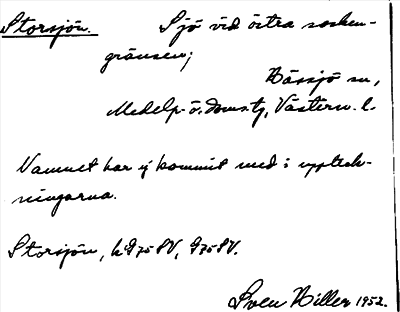 Storsjön. Sjö vid östra socken-
gränsen;
Hässjö sn,
Medelp. ö. domsg, Västern. l.
Namnet har ej kommit med i uppteck-
ningarna.
Storsjön,
Sven Hiller 1952.